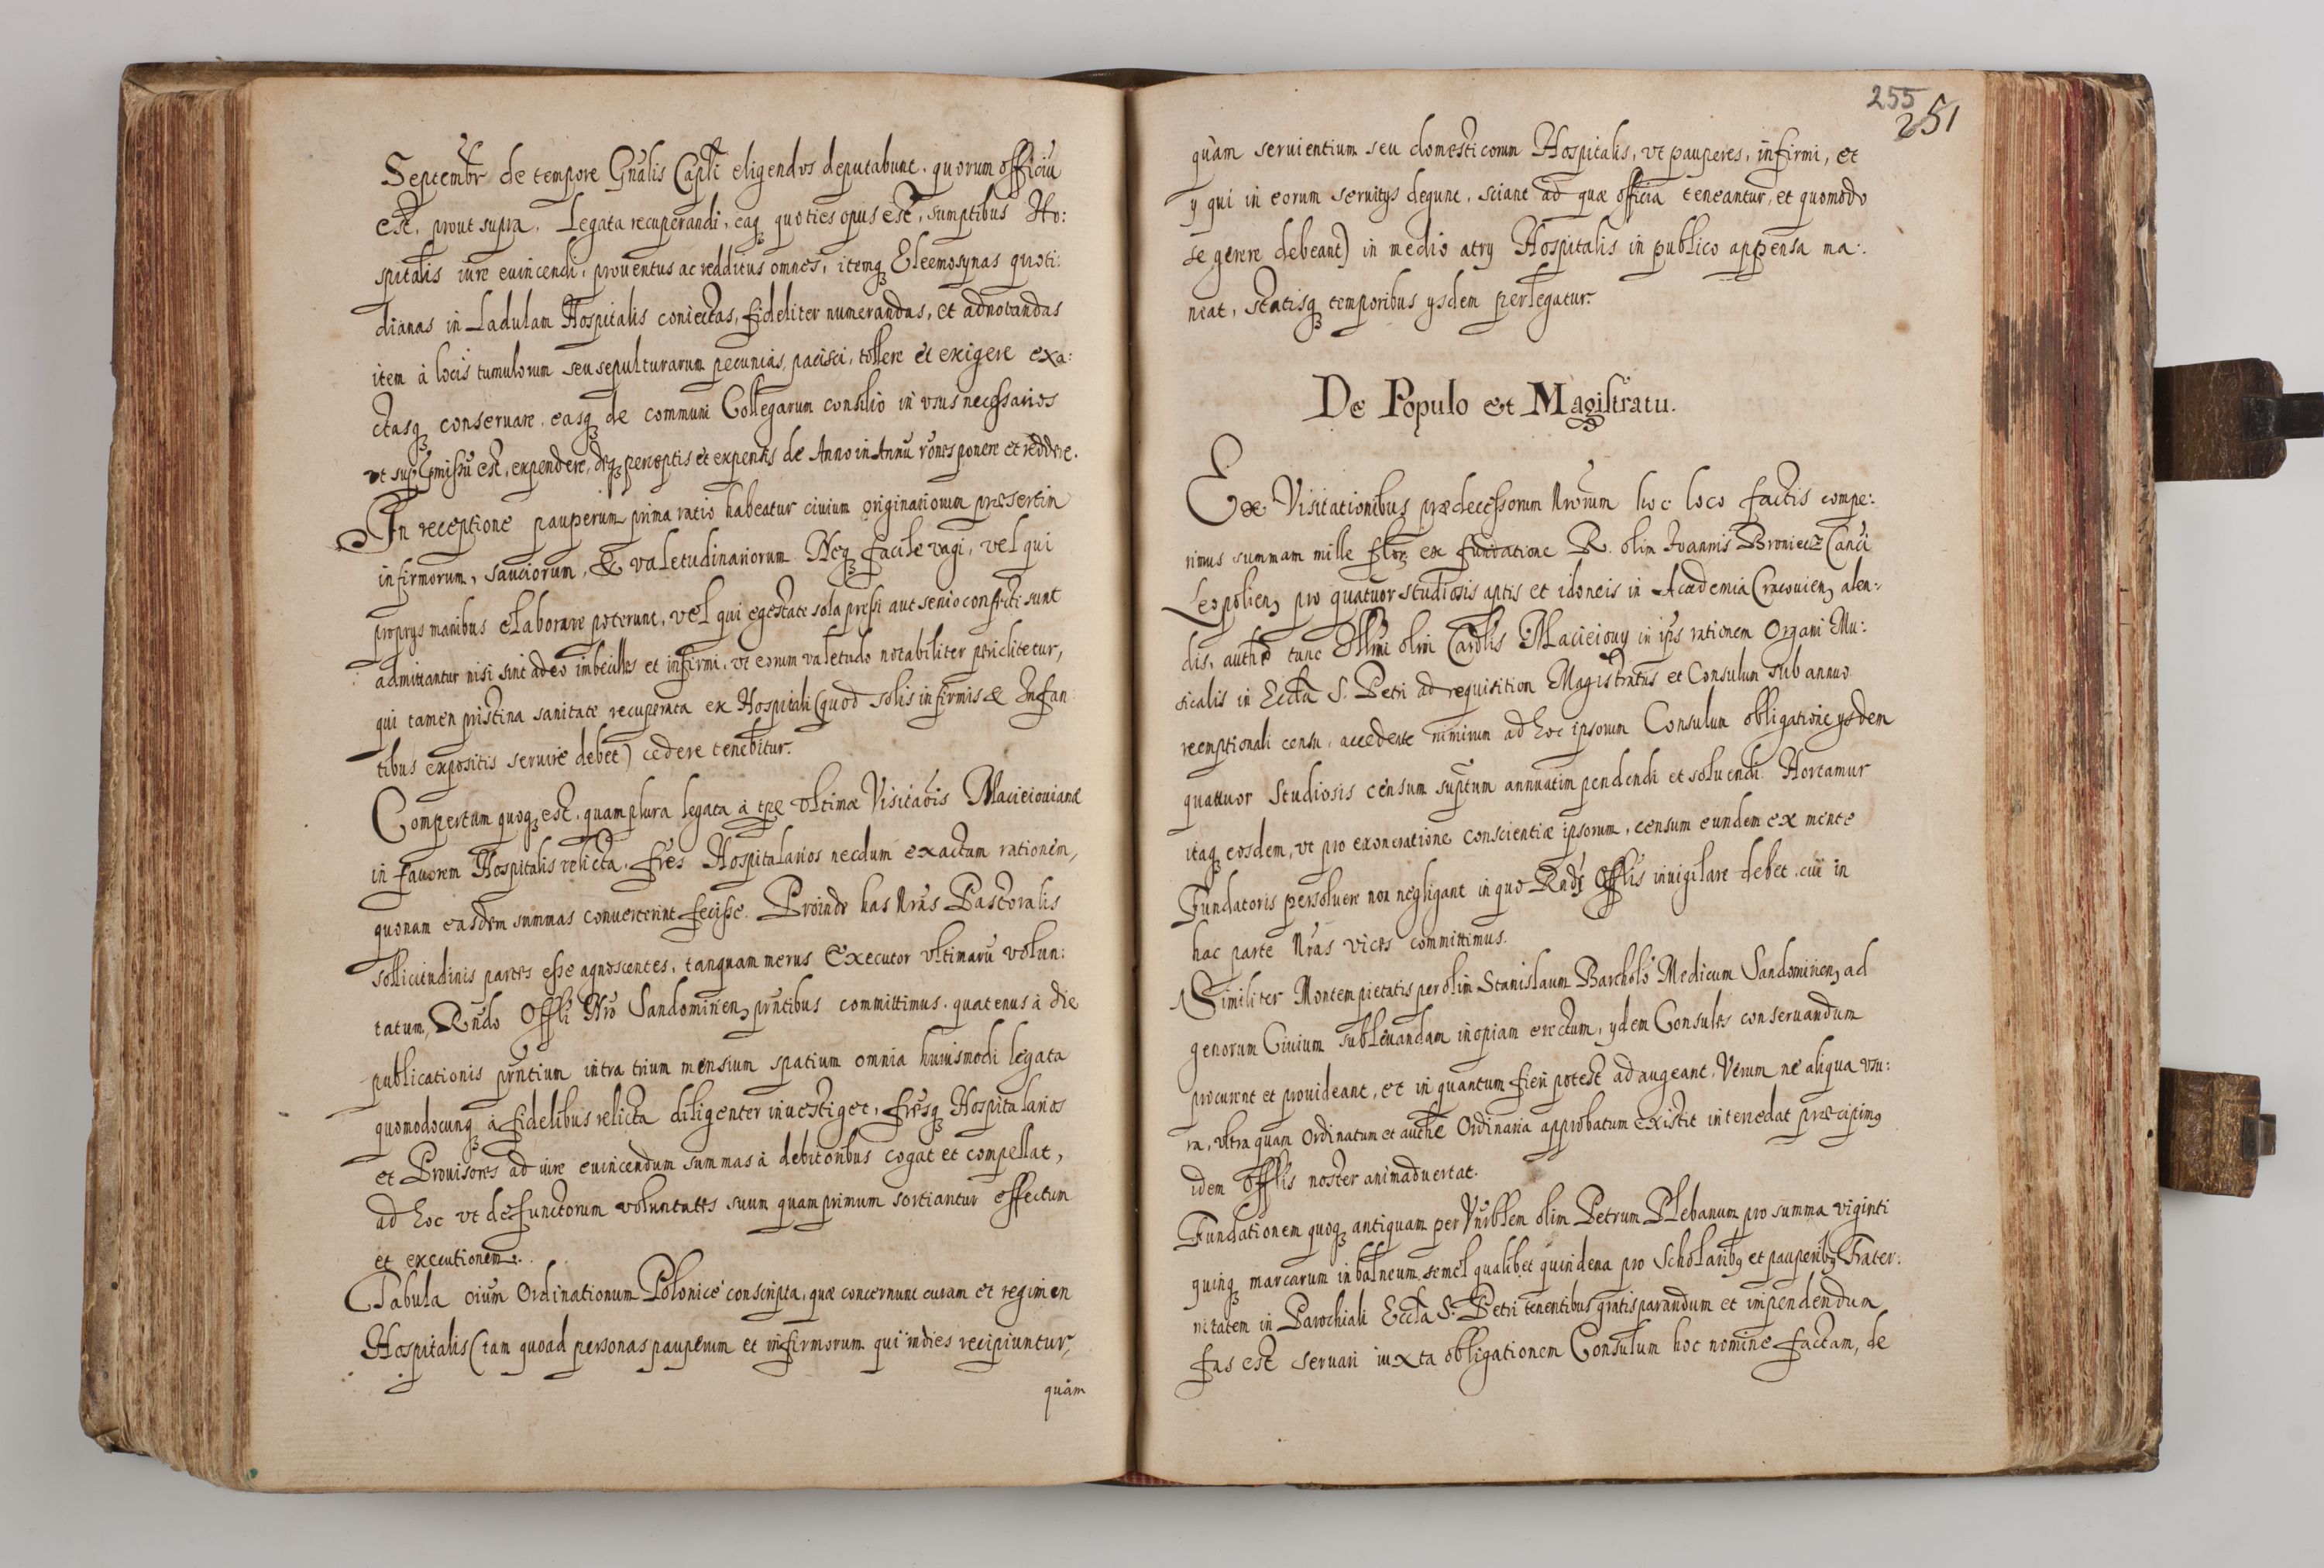 Septembr de tempore Gnalis Capli eligendos deputabunt. quorum officiu
est, prout supra, Legata recuperandi, eaq quoties opus est, sumptibus Ho:
spitalis iure euincendi, prouentus ac redditus omnes, itemq Eleemosynas quoti:
dianas in Ladulam Hospitalis coniectas, fideliter numerandas, et adnotandas
item à locis tumulorum seu sepulturarum pecunias, pacisci, tollere et exigere exa:
ctasq conseruare, easq de communi Collegarum consilio in vsus necessarios
vt sup pmissu est, expendere, deq perceptis et expensis de Anno in Annu rones ponere et reddere.
In receptione pauperum prima ratio habeatur ciuium originariorum præsertin
infirmorum, sauciorum, & valetudinariorum Neq facile vagi, vel qui
proprys manibus elaborare poterunt, vel qui egestate sola pressi aut senio confecti sunt
admittantur nisi sint adeo imbecilles et infirmi, vt eorum valetudo notabiliter periclitetur,
qui tamen pristina sanitate recuperata ex Hospitali (quod solis infirmis & Infan:
tibus expositis seruire debet) cedere tenebitur.
Compertum quoq est, quamplura legata à tpe vltimæ Visitaois Macieiouianæ
in fauorem Hospitalis relicta, fres Hospitalarios necdum exactam rationem,
quonam easdem summas conuerterint fecisse. Proinde has Nras Pastoralis
sollicitudinis partes esse agnoscentes, tanquam merus Executor vltimaru volun:
tatum, Rndo Offli Nro Sandomirien, pntibus committimus, quatenus à die
publicationis pntium intra trium mensium spatium omnia huiusmodi legata
quomodocunq à fidelibus relicta diligenter inuestiget, fresq Hospitalarios
et Prouisores ad iure euincendum summas à debitoribus cogat et compellat,
ad hoc vt defunctorum voluntates suum quamprimum sortiantur effectum
et executionem.
Tabula oium Ordinationum Polonicè conscripta, quæ concernunt curam et regimen
Hospitalis (tam quoad personas pauperum et infirmorum qui indies recipiuntur,
quàm
255
251
quàm seruientium seu domesticorum Hospitalis, vt pauperes, infirmi, et
y qui in eorum seruitys degunt, sciant ad quæ officia teneantur, et quomodo
se gerere debeant) in medio atry Hospitalis in publico appensa ma:
neat, statisq temporibus ysdem perlegatur.
De Populo et Magistratu.
Ex Visitationibus prædecessorum Nrorum hoc loco factis compe:
rimus summam mille flor ex fundatione R. olim Ioannis Broniecz Canci
Leopolien, pro quatuor studiosis aptis et idoneis in Academia Cracouien, alen:
dis, autho tunc Illmi olim Cardlis Macieiouy in ips rationem Organi Mu:
sicalis in Eccla S. Petri ad requisition Magistratus et Consulum sub annuo
reemptionali censu, accedente nimirum ad hoc ipsorum Consulum obligatione ysdem
quattuor Studiosis censum suptum annuatim pendendi et soluendi. Hortamur
itaq eosdem, vt pro exoneratione conscientiæ ipsorum, censum eundem ex mente
Fundatoris persoluere non negligant in quo Rnds Offlis inuigilare debet, cui in
hac parte Nras vices committimus.
Similiter Montem pietatis per olim Stanislaum Bartholo Medicum Sandomirien, ad
egenorum Ciuium subleuandam inopiam erectum, ydem Consules conseruandum
procurent et prouideant, et in quantum fieri potest adaugeant, Verum ne aliqua vsu:
ra, vltra quam Ordinatum et authe Ordinaria approbatum existit intercedat præcipimq
idem Offlis noster animaduertat.
Fundationem quoq antiquam per Vnrblem olim Petrum Plebanum pro summa viginti
quinq marcarum in balneum semel qualibet quindena pro Scholaribq et pauperibq Frater:
nitatem in Parochiali Eccla S. Petri tenentibus gratis parandum et impendendum
fas est seruari iuxta obligationem Consulum hoc nomine factam, de